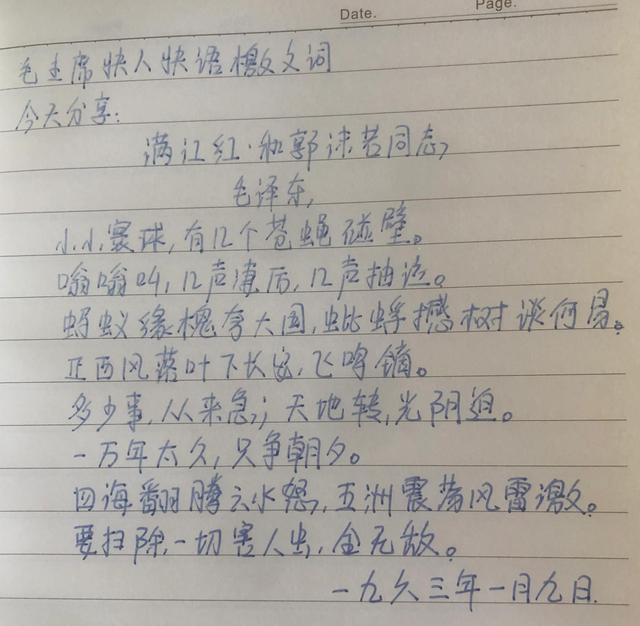 Date.
Page.
毛主席快人快语檄文词
今天分享:
满江红·和郭沫若同志
毛泽东
小小寰球,有几个苍蝇碰壁。
嗡嗡叫,几声凄厉,几声抽泣。
蚂蚁缘槐夸大国,蚍蜉撼树谈何易。
正西风落叶下长安,飞鸣镝。
多少事,从来急;天地转,光阴迫。
一万年太久,只争朝夕。
四海翻腾云水怒,五洲震荡风雷激。
要扫除一切害人虫,全无敌。
一九六三年一月九日.